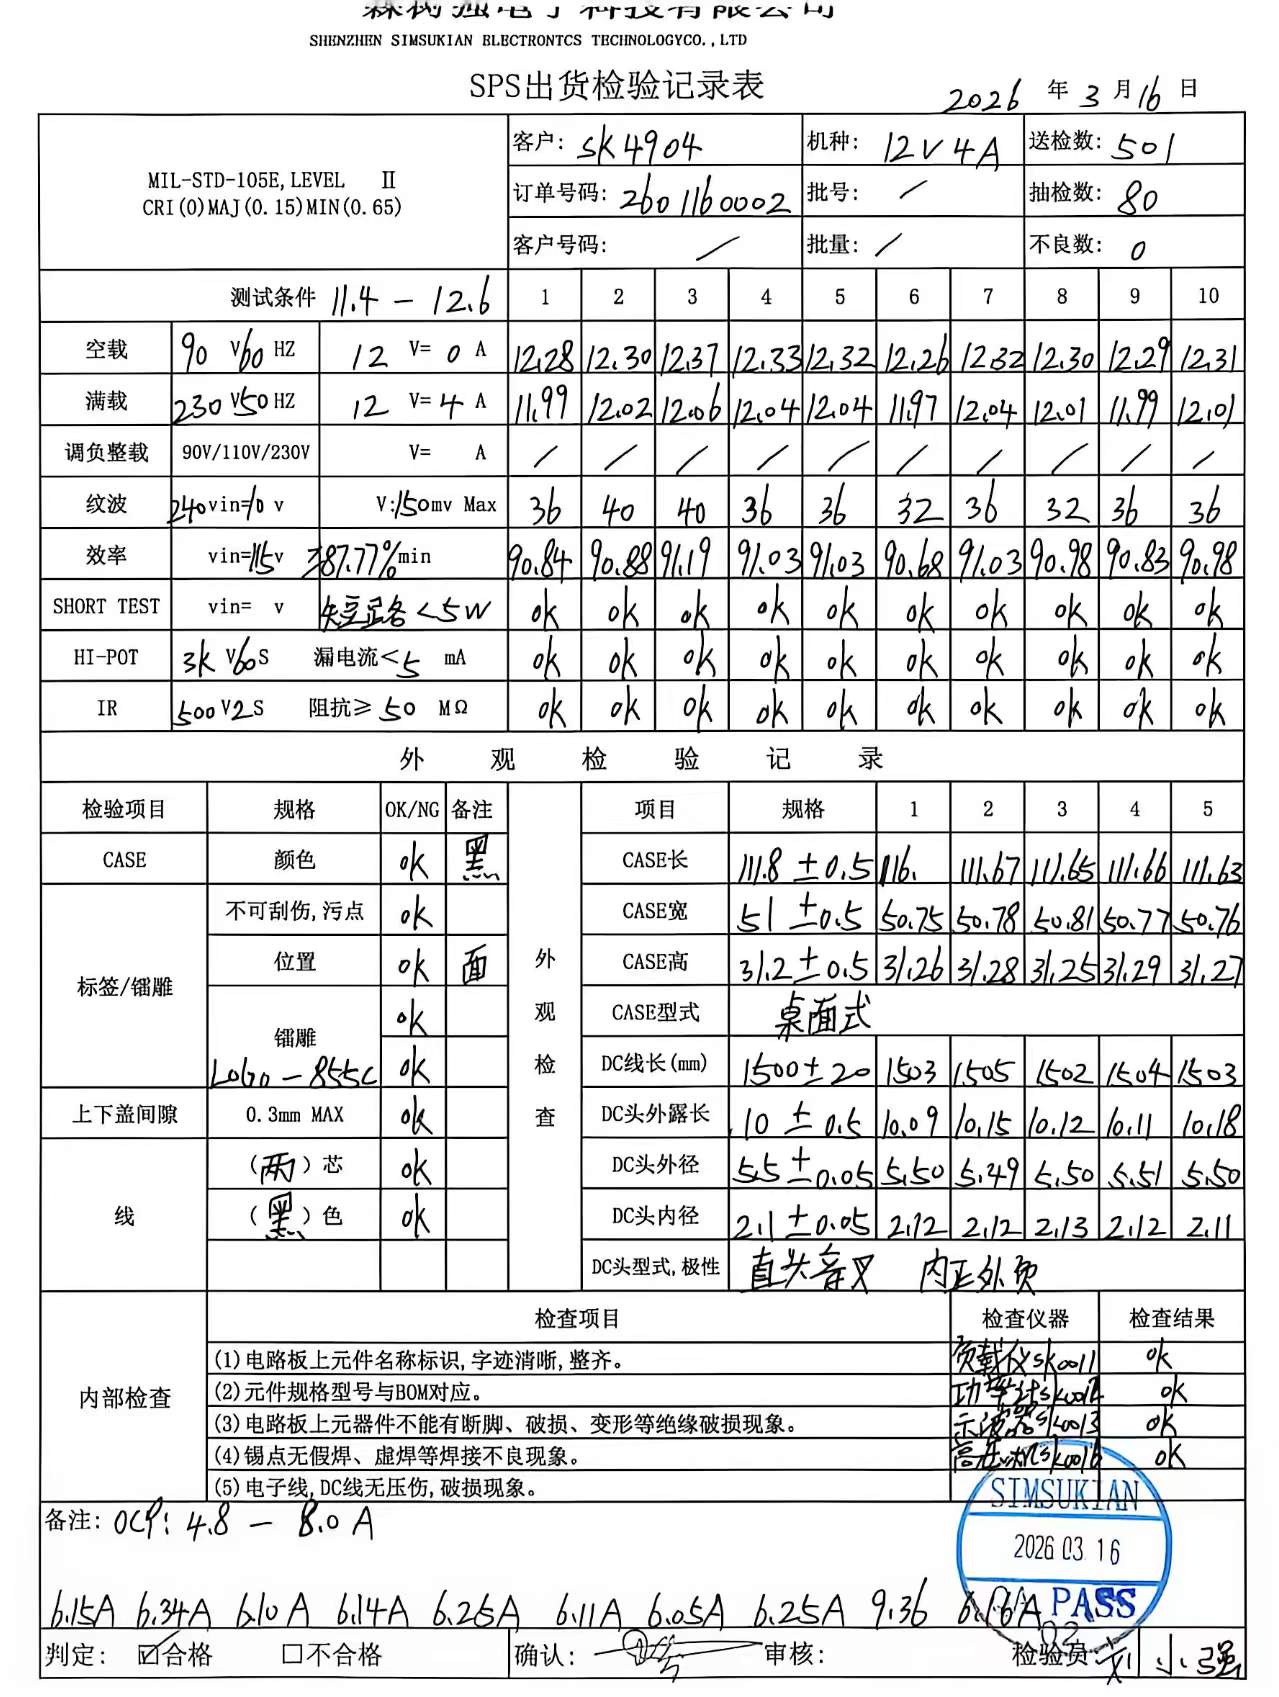 森树强电子科技有限公司
SHENZHEN SIMSUKIAN ELECTRONTCS TECHNOLOGYCO.,LTD
SPS出货检验记录表
2026 年 3 月 16 日
MIL-STD-105E,LEVEL Ⅱ
CRI(0)MAJ(0.15)MIN(0.65)
客户: SK4904 机种: 12V4A 送检数: 501
订单号码: 2601160002 批号: / 抽检数: 80
客户号码: / 批量: / 不良数: 0
测试条件 11.4 - 12.6 1 2 3 4 5 6 7 8 9 10
空载 90 V60 HZ 12 V= 0 A 12.28 12.30 12.37 12.33 12.32 12.26 12.32 12.30 12.29 12.31
满载 230 V50 HZ 12 V= 4 A 11.99 12.02 12.06 12.04 12.04 11.97 12.04 12.01 11.99 12.01
调负整载 90V/110V/230V V= A / / / / / / / / / /
纹波 240vin=10 v V:150mv Max 36 40 40 36 36 32 36 32 36 36
效率 vin=115v ≥87.77%min 90.84 90.88 91.19 91.03 91.03 90.68 91.03 90.98 90.83 90.98
SHORT TEST vin= v 短路<5W ok ok ok ok ok ok ok ok ok ok
HI-POT 3K V60S 漏电流<5 mA ok ok ok ok ok ok ok ok ok ok
IR 500V2S 阻抗≥50 MΩ ok ok ok ok ok ok ok ok ok ok
外 观 检 验 记 录
检验项目 规格 OK/NG 备注 项目 规格 1 2 3 4 5
CASE 颜色 ok 黑 CASE长 111.8±0.5 116. 111.67 111.65 111.66 111.63
不可刮伤,污点 ok CASE宽 51±0.5 50.75 50.78 50.81 50.77 50.76
标签/镭雕 位置 ok 面 外观检查 CASE高 31.2±0.5 31.26 31.28 31.25 31.29 31.27
ok CASE型式 桌面式
镭雕 LOGO-855C ok DC线长(mm) 1500±20 1503 1505 1502 1504 1503
上下盖间隙 0.3mm MAX ok DC头外露长 10±0.5 10.09 10.15 10.12 10.11 10.18
(两)芯 ok DC头外径 5.5±0.05 5.50 5.49 5.50 5.51 5.50
线 (黑)色 ok DC头内径 2.1±0.05 2.12 2.12 2.13 2.12 2.11
DC头型式,极性 直头音叉 内正外负
内部检查 检查项目 检查仪器 检查结果
(1)电路板上元件名称标识,字迹清晰,整齐。 负载仪SK0011 ok
(2)元件规格型号与BOM对应。 功率计SK0012 ok
(3)电路板上元器件不能有断脚、破损、变形等绝缘破损现象。 示波器SK0013 ok
(4)锡点无假焊、虚焊等焊接不良现象。 高压机SK0016 ok
(5)电子线,DC线无压伤,破损现象。
SIMSUKIAN
备注: OCP: 4.8 - 8.0A
2026 03 16
6.15A 6.34A 6.10A 6.14A 6.26A 6.11A 6.05A 6.25A 9.36 6.16A
QA PASS
02
判定: ☑合格 □不合格 确认: 审核: 检验员: 刘小强